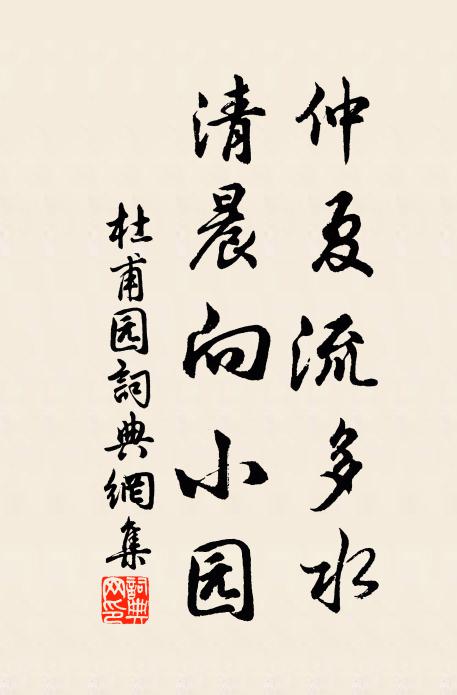 仲夏流多水
清晨向小园
杜甫园詞典網集
詞典网印